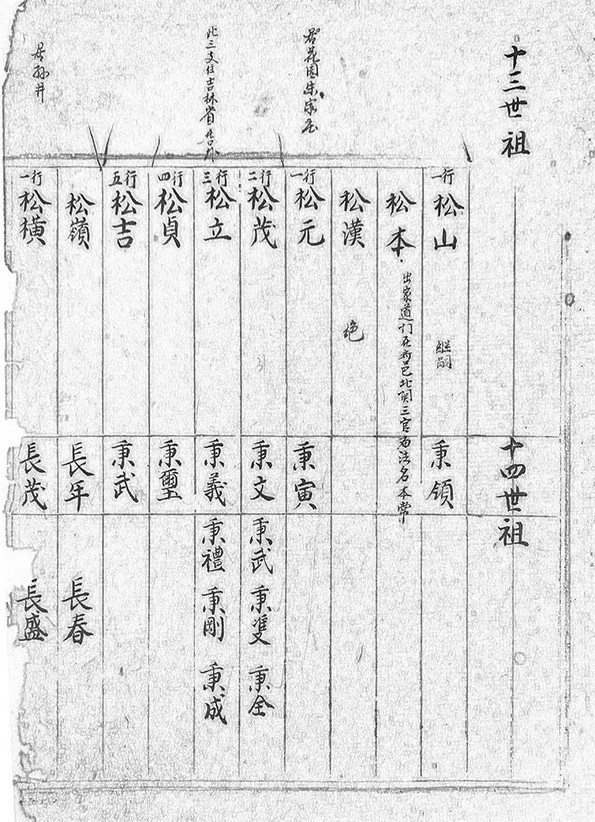 十三世祖
十四世祖
行一 松山 繼嗣
秉領
松本 出家道门在昔邑北関三官庙法名本常
松漢 绝
居花園朱家屯
行一 松元
秉寅
行二 松茂
秉文 秉武 秉隻 秉全
此三支住吉林省
行三 松立
秉義 秉禮 秉剛 秉成
行四 松貞
秉璽
行五 松吉
秉武
松嶺
長年 長春
居孙井
行一 松橫
長茂 長盛